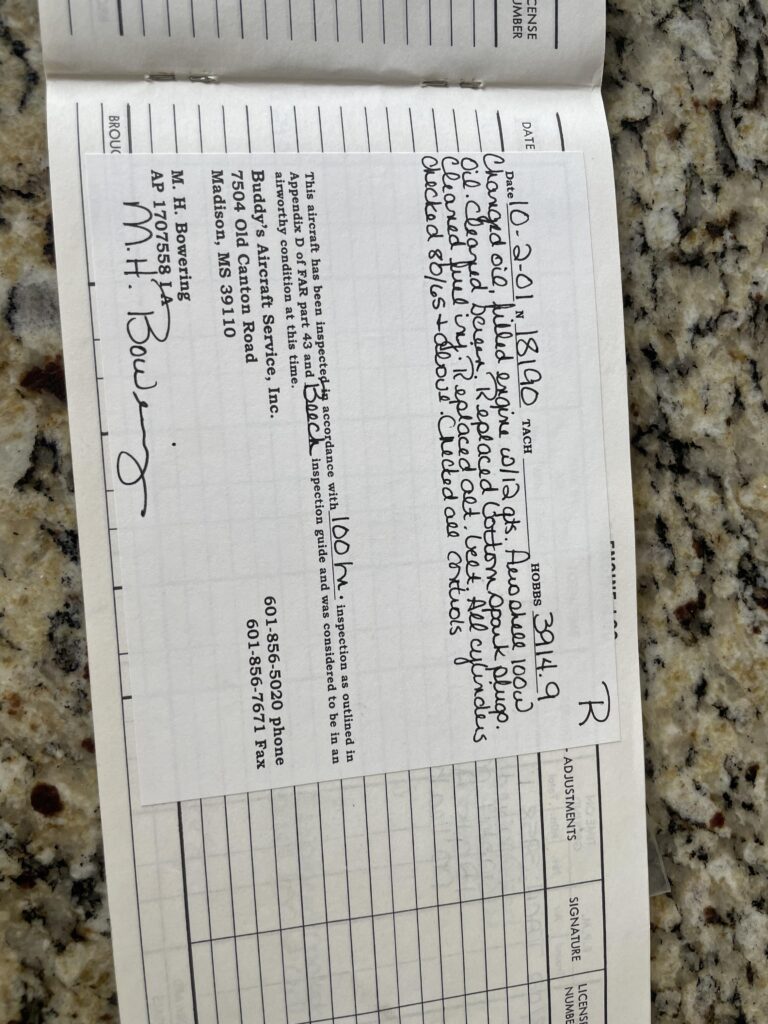 CENSE
UMBER
DATE
ENGINE LOG
ADJUSTMENTS
SIGNATURE
LICENSE
NUMBER
R
Date 10-2-01 N 18190 TACH HOBBS 3914.9
Changed oil, filled engine w/12 qts. Aeroshell 100W
oil. Cleaned screen. Replaced bottom spark plugs.
Cleaned fuel inj. Replaced alt. belt. All cylinders
checked 80/65 + above. Checked all controls
This aircraft has been inspected in accordance with 100 hr. inspection as outlined in
Appendix D of FAR part 43 and Beech inspection guide and was considered to be in an
airworthy condition at this time.
Buddy's Aircraft Service, Inc.
7504 Old Canton Road
Madison, MS 39110
601-856-5020 phone
601-856-7671 Fax
M. H. Bowering
AP 1707558 IA
M.H. Bowering
BROUG